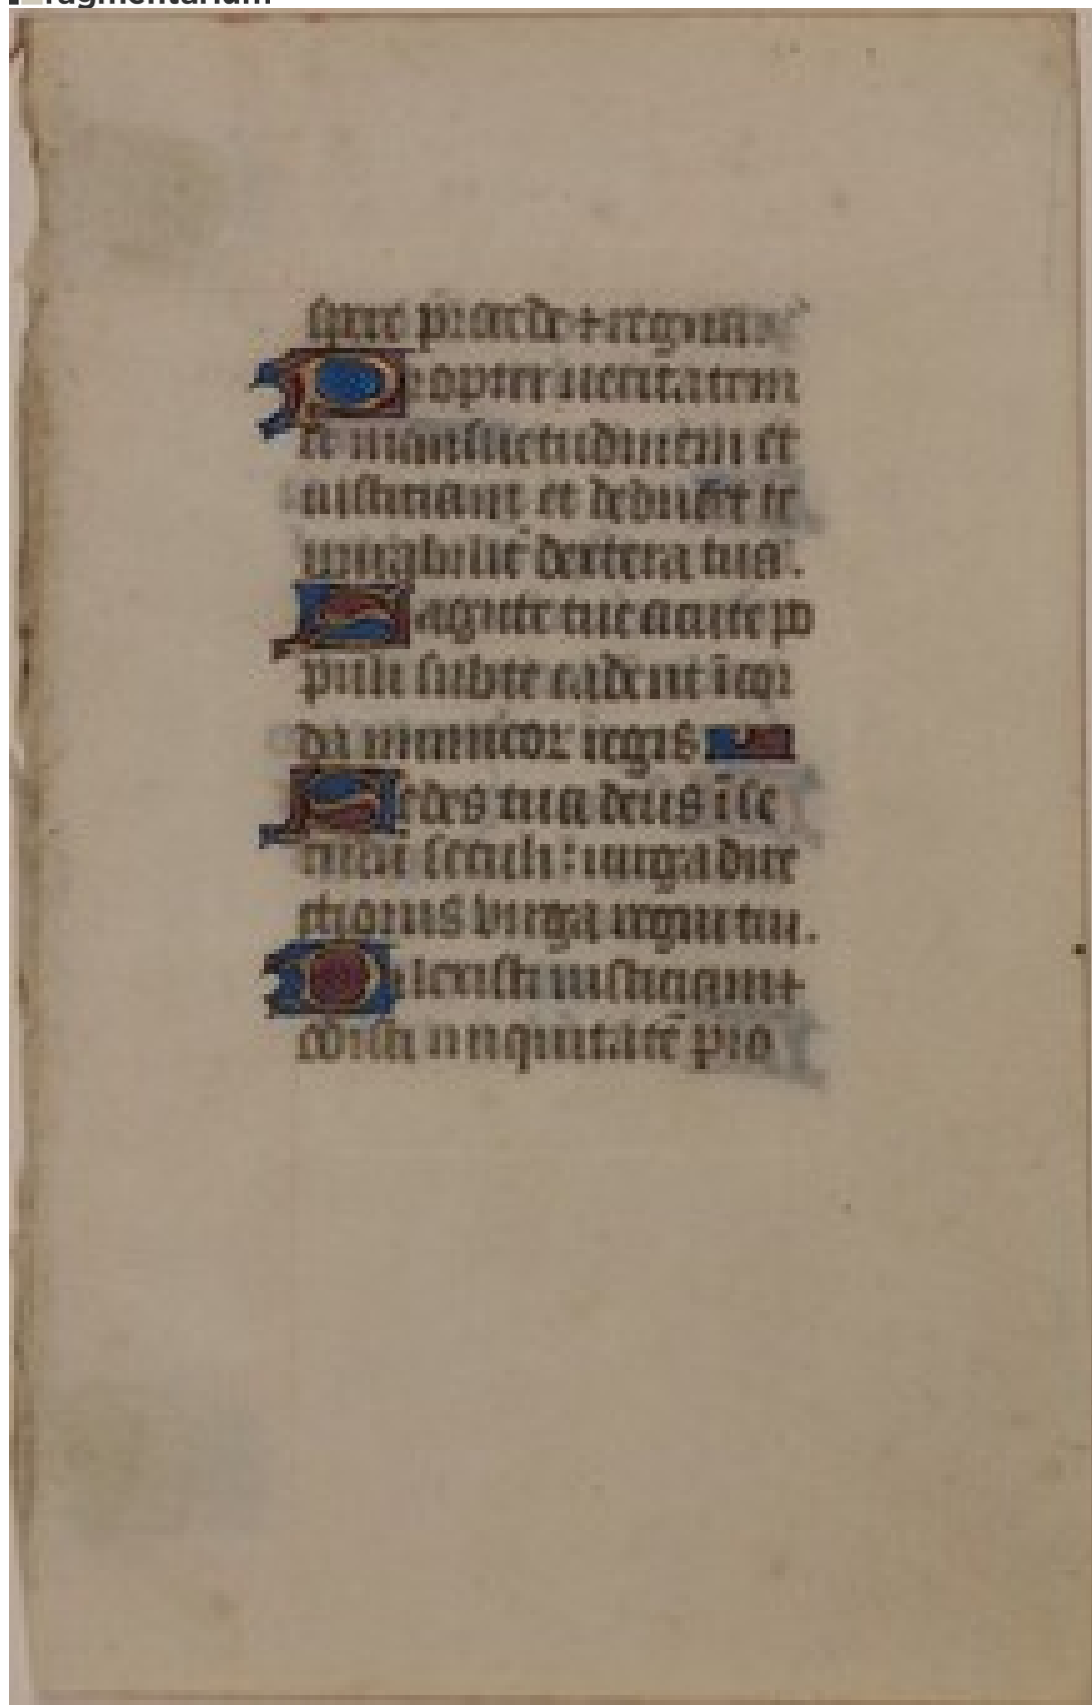 ragmentarium
spere procede + regna
Propter ueritatem
et mansuetudinem et
iusticiam et deducet te
mirabilit̄ dextera tua.
Sagitte tue acute po
puli sub te cadent ī cor
da inimicoꝝ regis
Sedes tua deus ī se
culū seculi: uirga dire
ctionis uirga regni tui.
Dilexisti iusticiam +
odisti iniquitatē pro